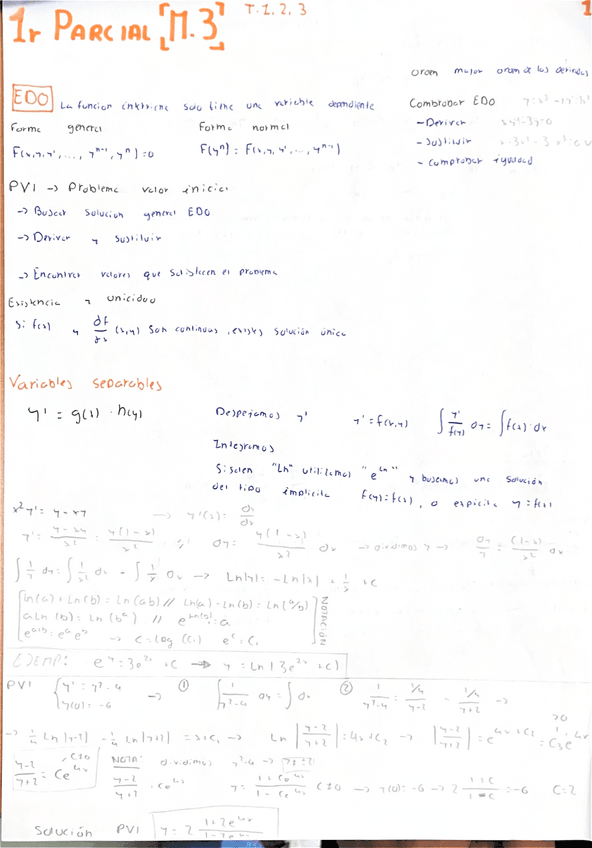 1r PARCIAL [M.3] T.1,2,3
1
orden mayor orden de las derivadas
EDO La funcion incognita solo tiene una variable dependiente
Comprobar EDO
Forma general Forma normal
-Derivar xy'-3y=0
F(x,y,y',...,yⁿ⁻¹,yⁿ)=0 F(yⁿ)=F(x,y,y',...,yⁿ⁻¹)
-Sustituir
-comprobar igualdad
PVI → Problema valor inicial
→ Buscar solucion general EDO
→ Derivar y sustituir
→ Encontrar valores que satisfacen el problema
Existencia y unicidad
Si f(x) y (x,y) son continuas, existe solución única
Variables separables
y' = g(x) · h(y) Despejamos y' y'=f(x,y) ∫ y'/f(y) dy = ∫f(x)·dx
Integramos
Si salen "Ln" utilizamos "e^Ln" y buscamos una solución
del tipo implícita f(y)=f(x), o explícita y=f(x)
x²y' = y-xy → y'(x) = dy/dx
y' = (y-xy)/x² = y(1-x)/x² dy = y(1-x)/x² dx → dividimos y → dy/y = (1-x)/x² dx
∫ 1/y dy = ∫ 1/x² dx - ∫ 1/x dx → Ln|y| = -Ln|x| + 1/x +C
Ln(a)+Ln(b)=Ln(ab) // Ln(a)-Ln(b)=Ln(a/b)
aLn(b)=Ln(bᵃ) // e^Ln(a)=a
→ C=Log(C₁) eᶜ=C₁
NOTACIÓN
EJEMP: eʸ=3e²ˣ+C → y=Ln(3e²ˣ+C)
PVI { y'=y²-4 y(0)=-6 → ① ∫ 1/(y²-4) dy = ∫dx ② 1/(y²-4) = (1/4)/(y-2) - (1/4)/(y+2) →
→ 1/4 Ln|y-2| - 1/4 Ln|y+2| = x+C₁ → Ln |(y-2)/(y+2)| = 4x+C₂ → |(y-2)/(y+2)| = e^(4x+C₂) = C₃e⁴ˣ
(y-2)/(y+2) = Ce⁴ˣ NOTA: dividimos y²-4 →
(y-2)/(y+2) = Ce⁴ˣ → y(0)=-6 → 2 (1+C)/(1-C) = -6 C=2
Solución PVI y=2 (1+2e⁴ˣ)/(1-2e⁴ˣ)